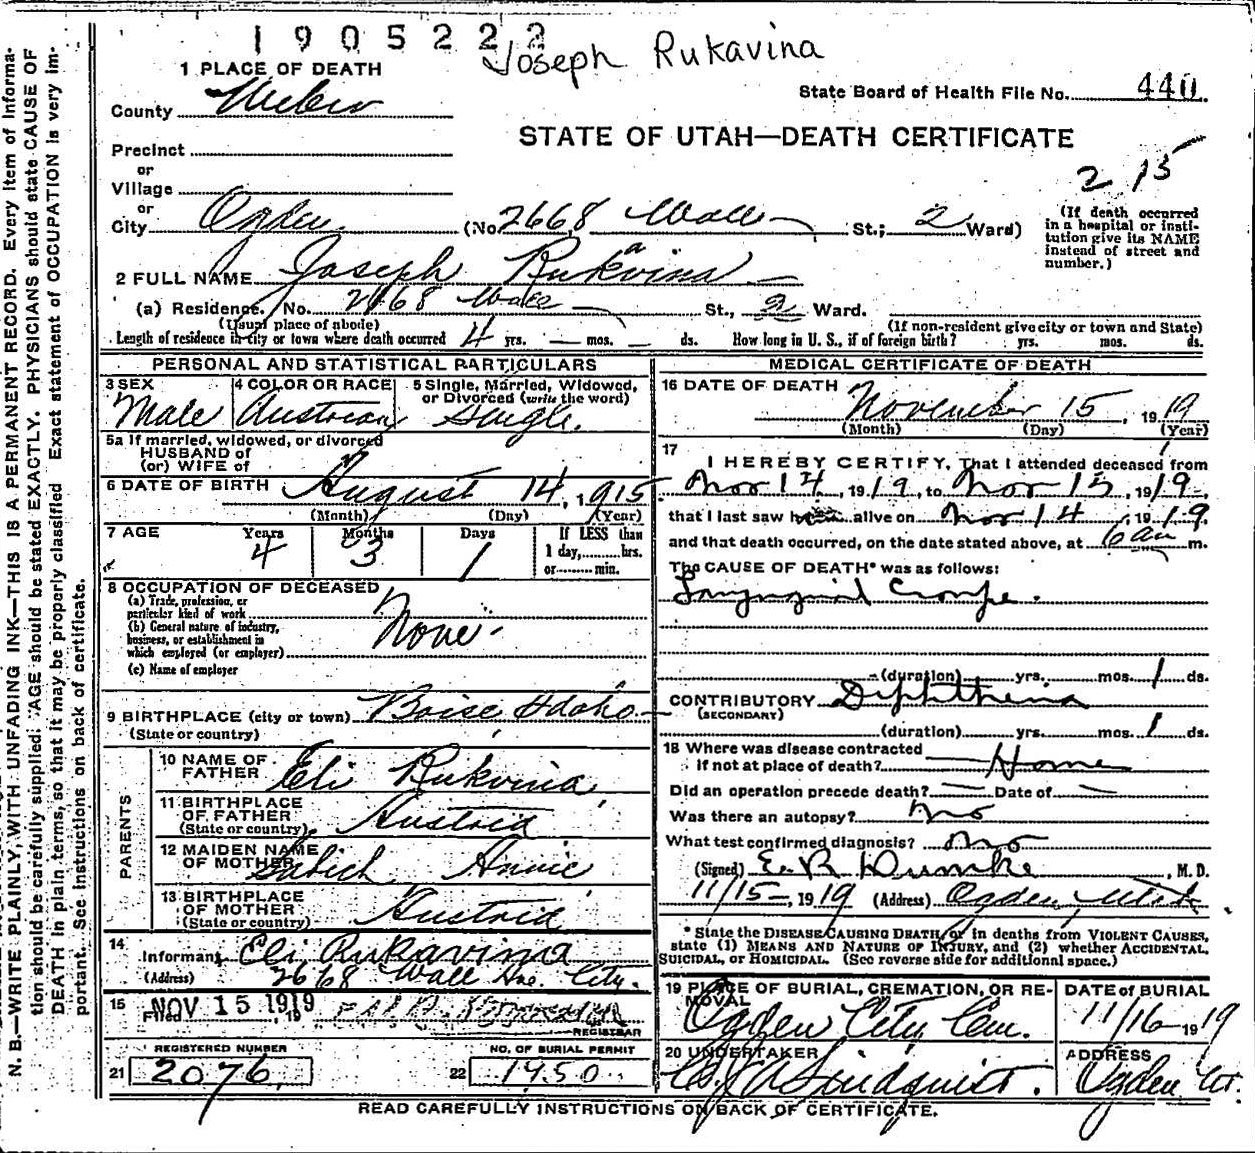 1905222
Joseph Rukavina
1 PLACE OF DEATH
County Weber
State Board of Health File No. 440
STATE OF UTAH—DEATH CERTIFICATE
Precinct
or
Village
2 15
or
City Ogden (No. 2668 Wall St.; 2 Ward)
(If death occurred in a hospital or institution give its NAME instead of street and number.)
2 FULL NAME Joseph Rukavina
(a) Residence. No. 2668 Wall St., 2 Ward.
(Usual place of abode) (If non-resident give city or town and State)
Length of residence in city or town where death occurred 4 yrs. — mos. ds. How long in U. S., if of foreign birth? yrs. mos. ds.
PERSONAL AND STATISTICAL PARTICULARS
3 SEX Male
4 COLOR OR RACE Austrian
5 Single, Married, Widowed, or Divorced (write the word) Single.
5a If married, widowed, or divorced
HUSBAND of
(or) WIFE of
6 DATE OF BIRTH August 14, 1915
(Month) (Day) (Year)
7 AGE Years 4 Months 3 Days 1
If LESS than
1 day, hrs.
or min.
8 OCCUPATION OF DECEASED
(a) Trade, profession, or
particular kind of work
None
(b) General nature of industry,
business, or establishment in
which employed (or employer)
(c) Name of employer
9 BIRTHPLACE (city or town) Boise Idaho
(State or country)
PARENTS
10 NAME OF FATHER Eli Rukvina
11 BIRTHPLACE OF FATHER (State or country) Austria
12 MAIDEN NAME OF MOTHER Annie
13 BIRTHPLACE OF MOTHER (State or country) Austria
14 Informant Eli Rukavina
(Address) 2668 Wall Ave. City.
15 Filed NOV 15 1919, 19
REGISTRAR
REGISTERED NUMBER
21 2076
NO. OF BURIAL PERMIT
22 1950
MEDICAL CERTIFICATE OF DEATH
16 DATE OF DEATH November 15, 1919
(Month) (Day) (Year)
17 I HEREBY CERTIFY, That I attended deceased from
Nov 14, 1919, to Nov 15, 1919,
that I last saw him alive on Nov 14, 1919
and that death occurred, on the date stated above, at 6 am m.
The CAUSE OF DEATH* was as follows:
Laryngeal Croupe.
(duration) yrs. mos. 1 ds.
CONTRIBUTORY Diphtheria
(SECONDARY)
(duration) yrs. mos. 1 ds.
18 Where was disease contracted
if not at place of death? Home
Did an operation precede death? — Date of —
Was there an autopsy? no
What test confirmed diagnosis? no
(Signed) E. R. Dumke, M. D.
11/15, 1919 (Address) Ogden Utah
* State the DISEASE CAUSING DEATH, or in deaths from VIOLENT CAUSES,
state (1) MEANS AND NATURE OF INJURY, and (2) whether ACCIDENTAL,
SUICIDAL, or HOMICIDAL. (See reverse side for additional space.)
19 PLACE OF BURIAL, CREMATION, OR REMOVAL
Ogden City Cem.
DATE of BURIAL
11/16 1919
20 UNDERTAKER
Lindquist.
ADDRESS
Ogden Ut.
READ CAREFULLY INSTRUCTIONS ON BACK OF CERTIFICATE.
N. B.—WRITE PLAINLY, WITH UNFADING INK—THIS IS A PERMANENT RECORD. Every item of informa-
tion should be carefully supplied. AGE should be stated EXACTLY. PHYSICIANS should state CAUSE OF
DEATH in plain terms, so that it may be properly classified. Exact statement of OCCUPATION is very im-
portant. See instructions on back of certificate.